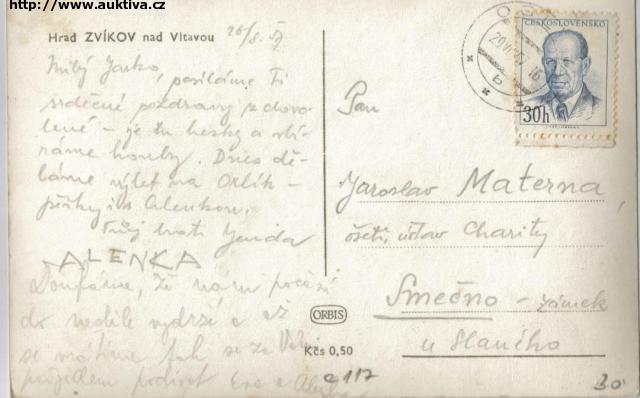 http://www.auktiva.cz
Hrad ZVÍKOV nad Vltavou 26/8. 57
Milý Jarko, posíláme Ti
srdečné pozdravy z dovo-
lené - je tu hezky a sbí-
ráme houby. Dnes dě-
láme výlet na Orlík -
pěšky i s Alenkou.
Tvůj bratr Jenda
ALENKA
Doufáme, že nám počasí
do neděle vydrží a až
se vrátíme tak se za
přijedem podívat Eva a
ORBIS
Kčs 0,50
ČESKOSLOVENSKO
30h
Pan
Jaroslav Materna,
ošetř. ústav Charity
Smečno - zámek
u Slaného
117
30